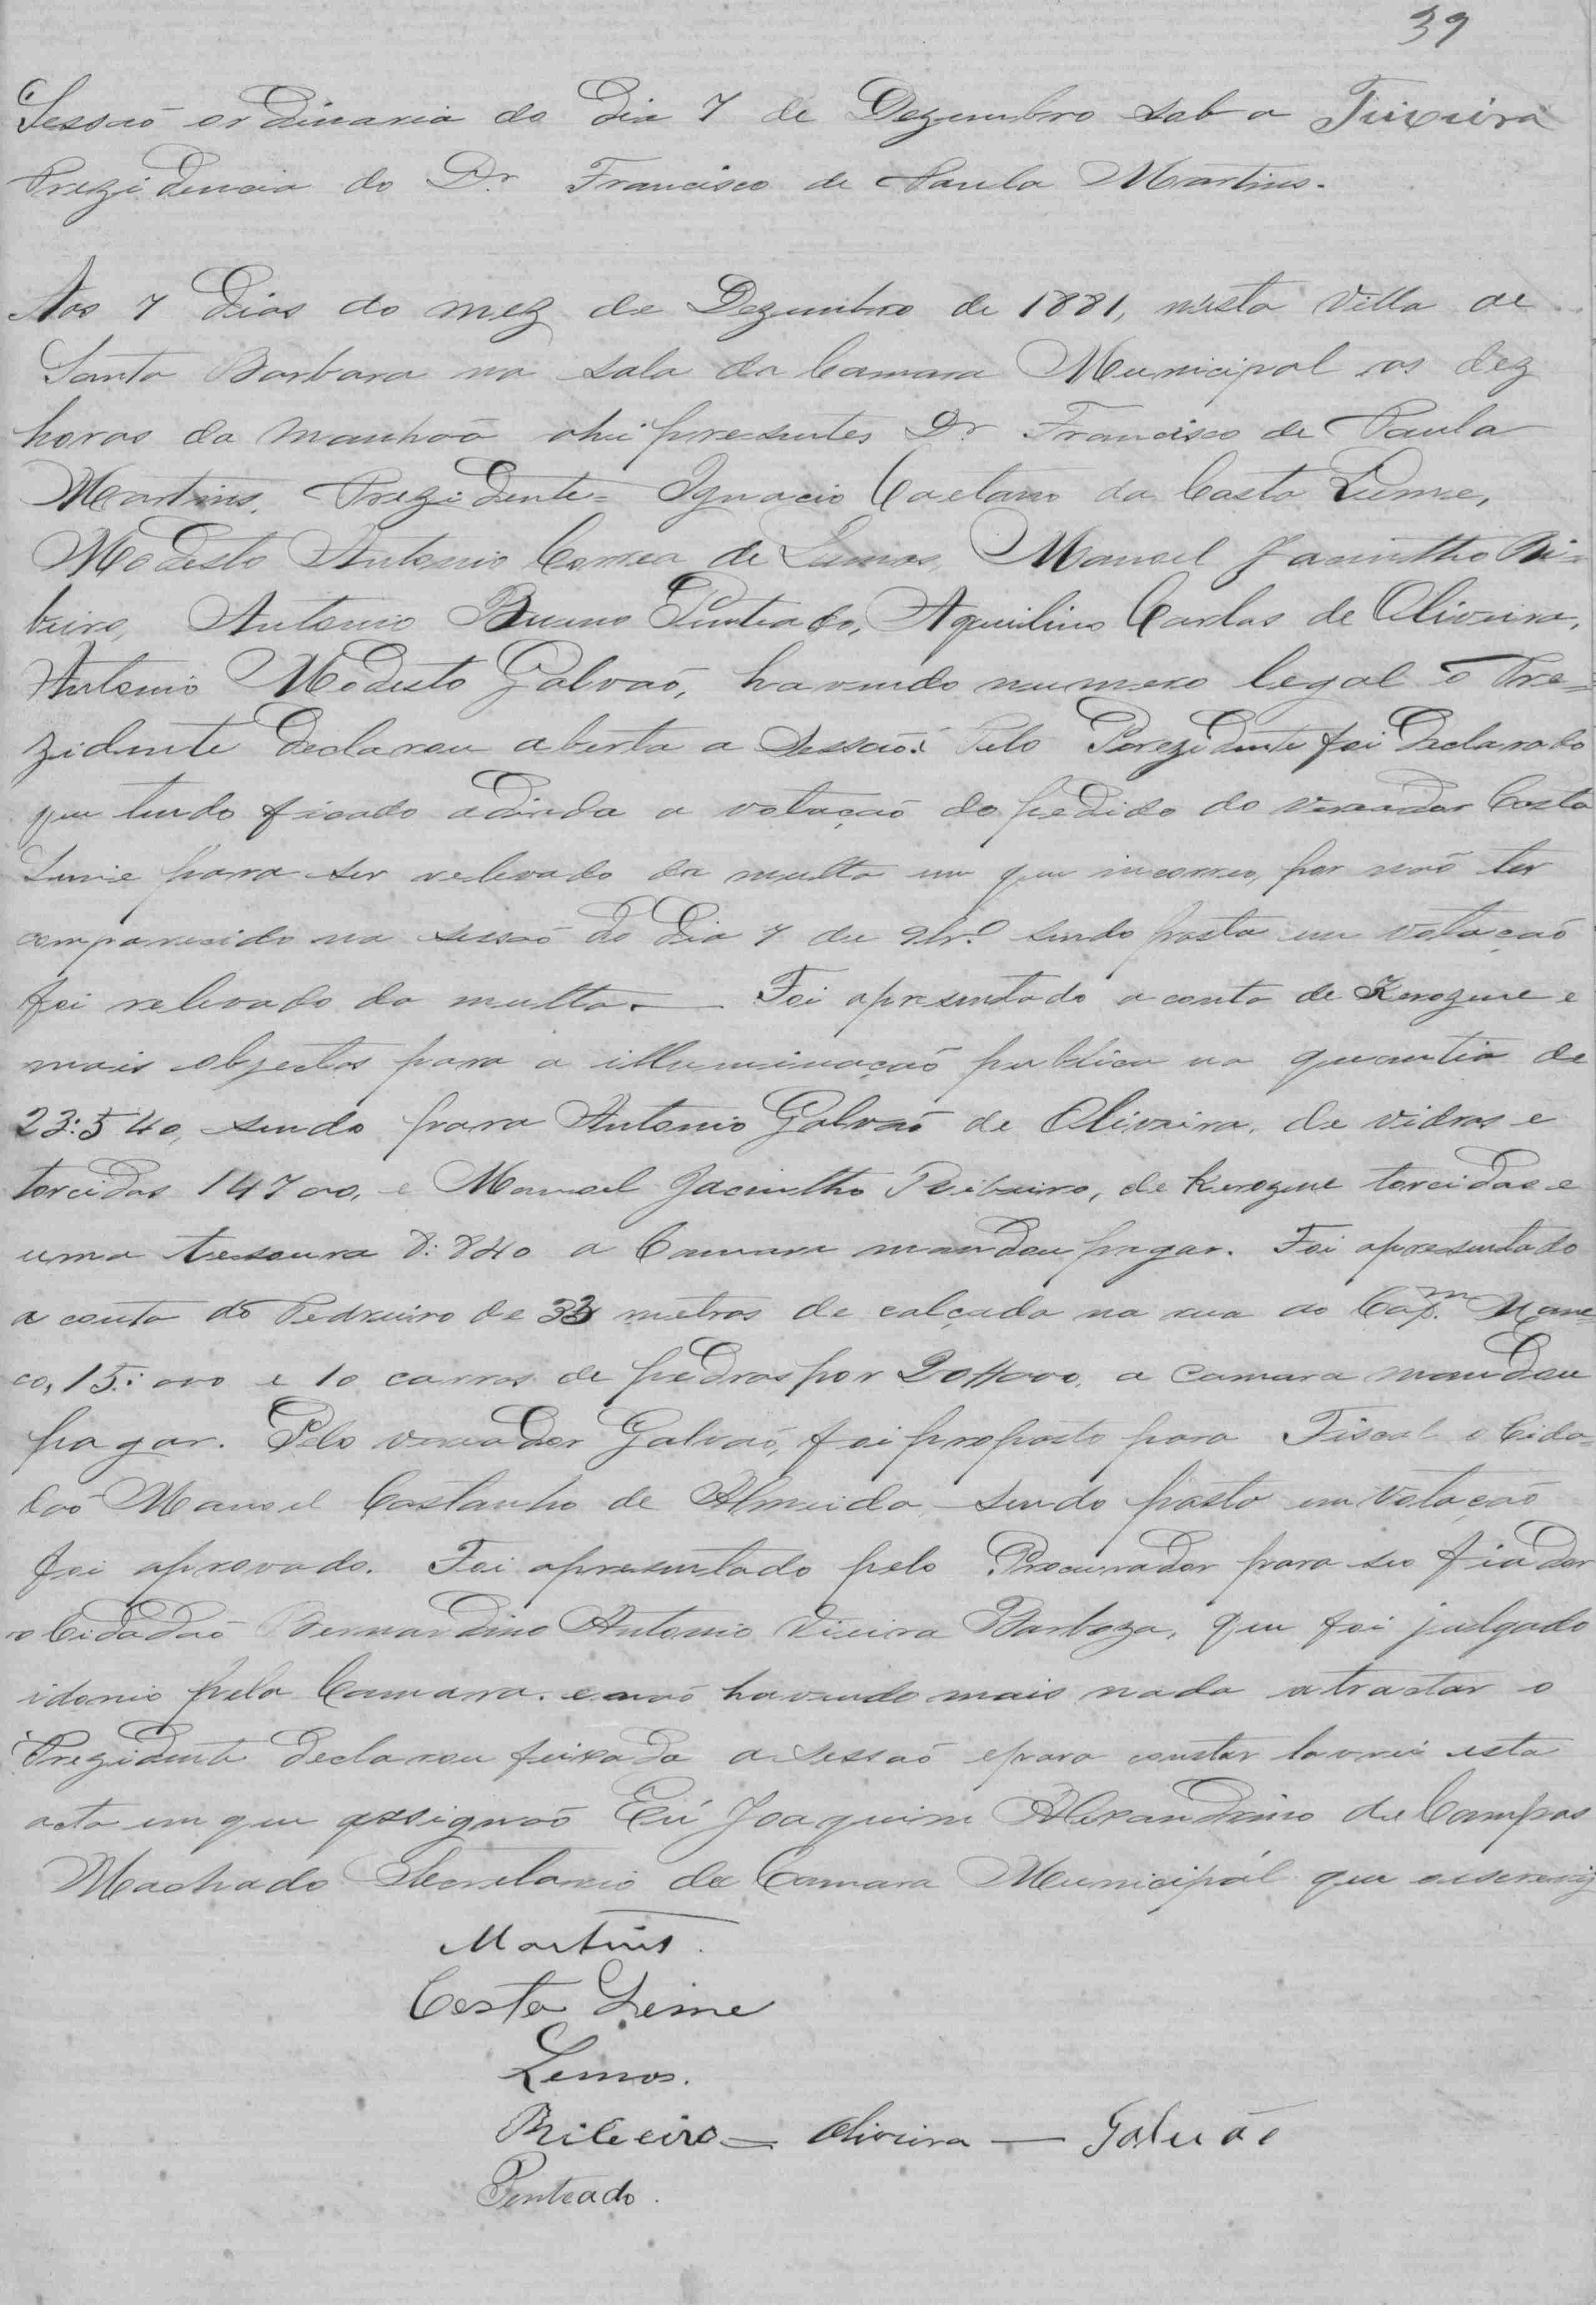 39
Sessaõ ordinaria do Dia 7 de Dezembro sob a Teixeira
Prezidencia do Dr Francisco de Paula Martins.
Aos 7 Dias do mez de Dezembro de 1881, nesta Villa de
Santa Barbara na sala da Camara Municipal as dez
horas da manhaã ahi presentes Dr Francisco de Paula
Martins, Prezidente= Ignacio Caetano da Costa Leme,
Modesto Antonio Correa de Lemos, Manoel Jacintho Ri=
beiro, Antonio Bueno Penteado, Aquilino Carlos de Oliveira,
Antonio Modesto Galvaõ, havendo numero legal o Pre=
zidente Declarou aberta a Sessaõ: Pelo Prezidente foi Declarado
que tendo ficado adiada a votaçaõ do pedido do vereador Costa
Leme para ser relevado da multa em que incorreu, por naõ ter
comparecido na sessaõ do Dia 7 de 9br.º sendo posta em votaçaõ
foi relevado da multa. — Foi apresentado a conta de Kerozene e
mais objectos para a illuminaçaõ publica na quantia de
23:540, sendo para Antonio Galvaõ de Oliveira, de vidros e
torcidas 14700, e Manoel Jacintho Ribeiro, de Kerozene torcidas e
uma tesoura 8:840 a Camara mandou pagar. Foi apresentado
a conta do Pedreiro de 33 metros de calçada na rua do Cap.m Mane
co, 15:000 e 10 carros de pedras por 20#000, a camara mandou
pagar. Pelo vereador Galvaõ, foi proposto para Fiscal o Cida=
daõ Manoel Castanho de Almeida, sendo posto em votaçaõ
foi aprovado. Foi apresentado pelo Procurador para seo fiador
o Cidadaõ Bernardino Antonio Vieira Barboza, que foi julgado
idonio pela Camara. e naõ havendo mais nada a tractar o
Prezidente Declarou feixada a Sessaõ e para constar lavrei esta
acta em que assignaõ Eu Joaquim Alexandrino de Campos
Machado Secretario da Camara Municipal que o escrevij
Martins.
Costa Leme
Lemos.
Ribeiro = Oliveira — Galvaõ
Penteado.